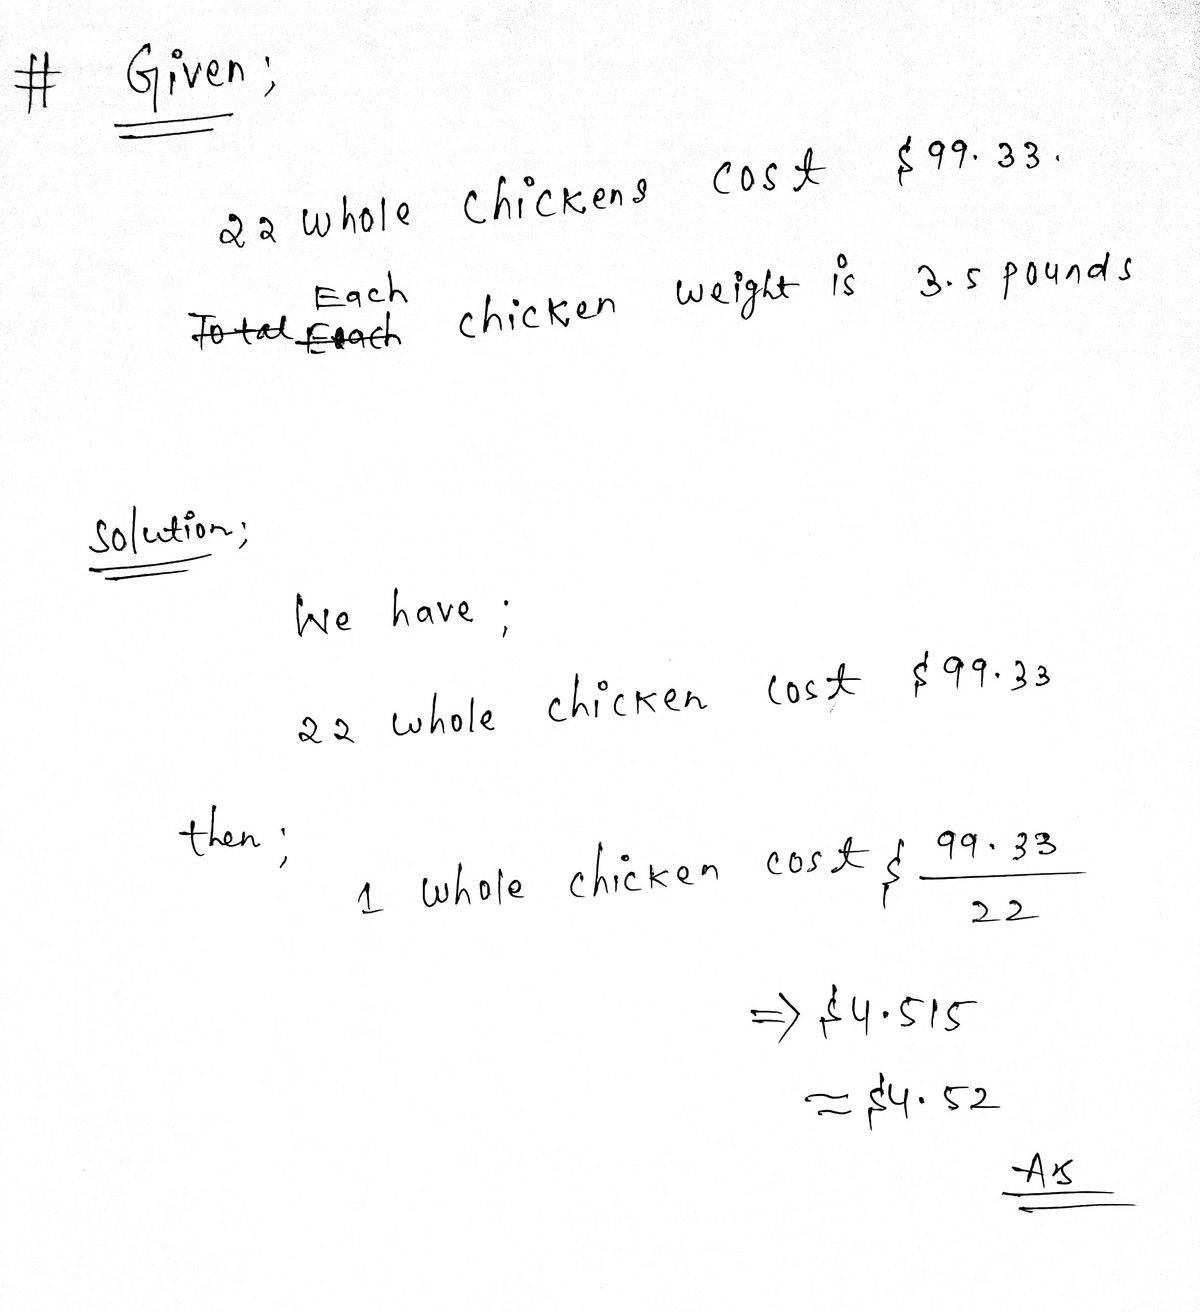 # Given;
22 whole chickens cost $99.33.
Each
Total Each chicken weight is 3.5 pounds
Solution;
We have;
22 whole chicken cost $99.33
then;
1 whole chicken cost $ 99.33
22
=> $4.515
≈ $4.52